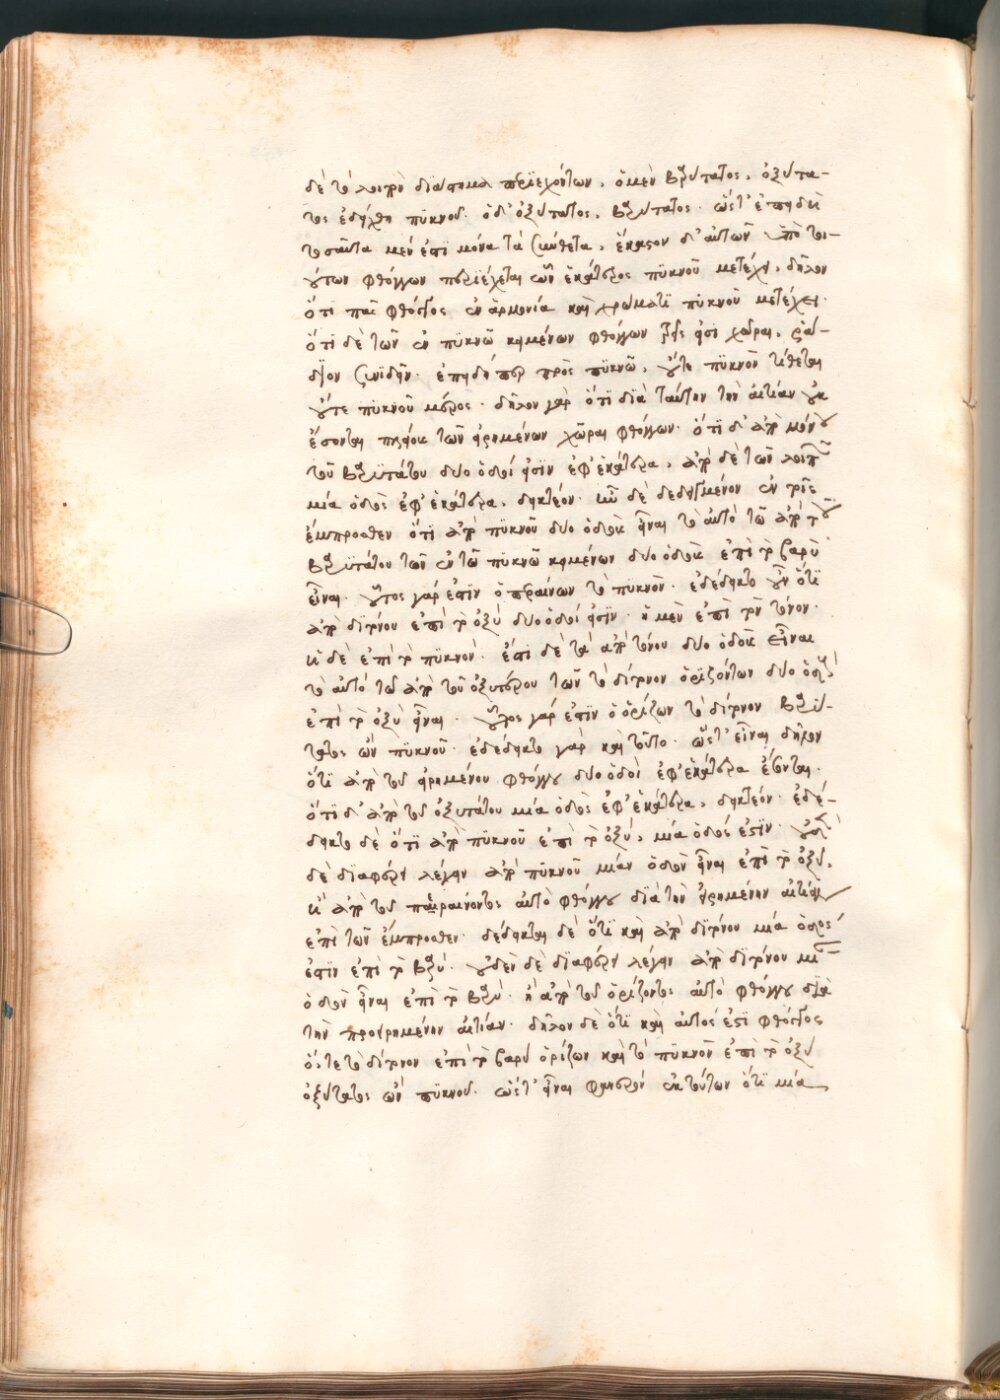 δὲ τὸ λοιπὸν διάστημα περιεχόντων, ὁ μὲν βαρύτατος, ὀξύτα-
τος ἐδείχθη πυκνοῦ. ὁ δ' ὀξύτατος, βαρύτατος. ὥστ' ἐπειδὴ
τοσαῦτα μέν ἐστι μόνα τὰ σύνθετα, ἕκαστον δ' αὐτῶν ὑπὸ τοι-
ούτων φθόγγων περιέχεται ὧν ἑκάτερος πυκνοῦ μετέχει, δῆλον
ὅτι πᾶς φθόγγος ἐν ἁρμονία καὶ χρώματι πυκνοῦ μετέχει.
ὅτι δὲ τῶν ἐν πυκνῶ κειμένων φθόγγων τρεῖς εἰσι χῶραι, ῥά-
διον συνιδεῖν. ἐπειδήπερ πρὸς πυκνῶ, οὔτε πυκνὸν τίθεται
οὔτε πυκνοῦ μέρος. δῆλον γὰρ ὅτι διὰ ταύτην τὴν αἰτίαν οὐκ
ἔσονται πλείους τῶν εἰρημένων χῶραι φθόγγων. ὅτι δ' ἀπὸ μόνου
τοῦ βαρυτάτου δύο ὁδοί εἰσιν ἐφ' ἑκάτερα, ἀπὸ δὲ τῶν λοιπῶν
μία ὁδὸς ἐφ' ἑκάτερα, δεικτέον. ἦν δὲ δεδειγμένον ἐν τοῖς
ἔμπροσθεν ὅτι ἀπὸ πυκνοῦ δύο ὁδοὺς εἶναι τὸ αὐτὸ τῶ ἀπὸ τοῦ
βαρυτάτου τῶν ἐν τῶ πυκνῶ κειμένων δύο ὁδοὺς ἐπὶ τὸ βαρὺ
εἶναι. οὗτος γάρ ἐστιν ὁ περαίνων τὸ πυκνόν. ἐδέδεικτο οὖν ὅτι
ἀπὸ διτόνου ἐπὶ τὸ ὀξὺ δύο ὁδοί εἰσιν. ἡ μὲν ἐπὶ τὸν τόνον.
ἡ δὲ ἐπὶ τὸ πυκνόν. ἔστι δὲ τὰ ἀπὸ τόνου δύο ὁδοὺς εἶναι
τὸ αὐτὸ τῶ ἀπὸ τοῦ ὀξυτέρου τῶν τὸ δίτονον ὁριζόντων δύο ὁδοὺς
ἐπὶ τὸ ὀξὺ εἶναι. οὗτος γάρ ἐστιν ὁ ὁρίζων τὸ δίτονον βαρύ-
τατος ὢν πυκνοῦ. ἐδέδεικτο γὰρ καὶ τοῦτο. ὥστ' εἶναι δῆλον
ὅτι ἀπὸ τοῦ εἰρημένου φθόγγου δύο ὁδοὶ ἐφ' ἑκάτερα ἔσονται.
ὅτι δ' ἀπὸ τοῦ ὀξυτάτου μία ὁδὸς ἐφ' ἑκάτερα, δεικτέον. ἐδέ-
δεικτο δὲ ὅτι ἀπὸ πυκνοῦ ἐπὶ τὸ ὀξύ, μία ὁδός ἐστιν. οὐδὲν
δὲ διαφέρει λέγειν ἀπὸ πυκνοῦ μίαν ὁδὸν εἶναι ἐπὶ τὸ ὀξύ,
ἢ ἀπὸ τοῦ περαίνοντος αὐτὸ φθόγγου διὰ τὴν εἰρημένην αἰτίαν
ἐπὶ τῶν ἔμπροσθεν. δέδεικται δὲ ὅτι καὶ ἀπὸ διτόνου μία ὁδός
ἐστιν ἐπὶ τὸ βαρύ. οὐδὲν δὲ διαφέρει λέγειν ἀπὸ διτόνου μίαν
ὁδὸν εἶναι ἐπὶ τὸ βαρύ. ἢ ἀπὸ τοῦ ὁρίζοντος αὐτὸ φθόγγου διὰ
τὴν προειρημένην αἰτίαν. δῆλον δὲ ὅτι καὶ αὐτός ἐστι φθόγγος
ὅ, τε τὸ δίτονον ἐπὶ τὸ βαρὺ ὁρίζων καὶ τὸ πυκνὸν ἐπὶ τὸ ὀξὺ
ὀξύτατος ὢν πυκνοῦ. ὥστ' εἶναι φανερὸν ἐκ τούτων ὅτι μία